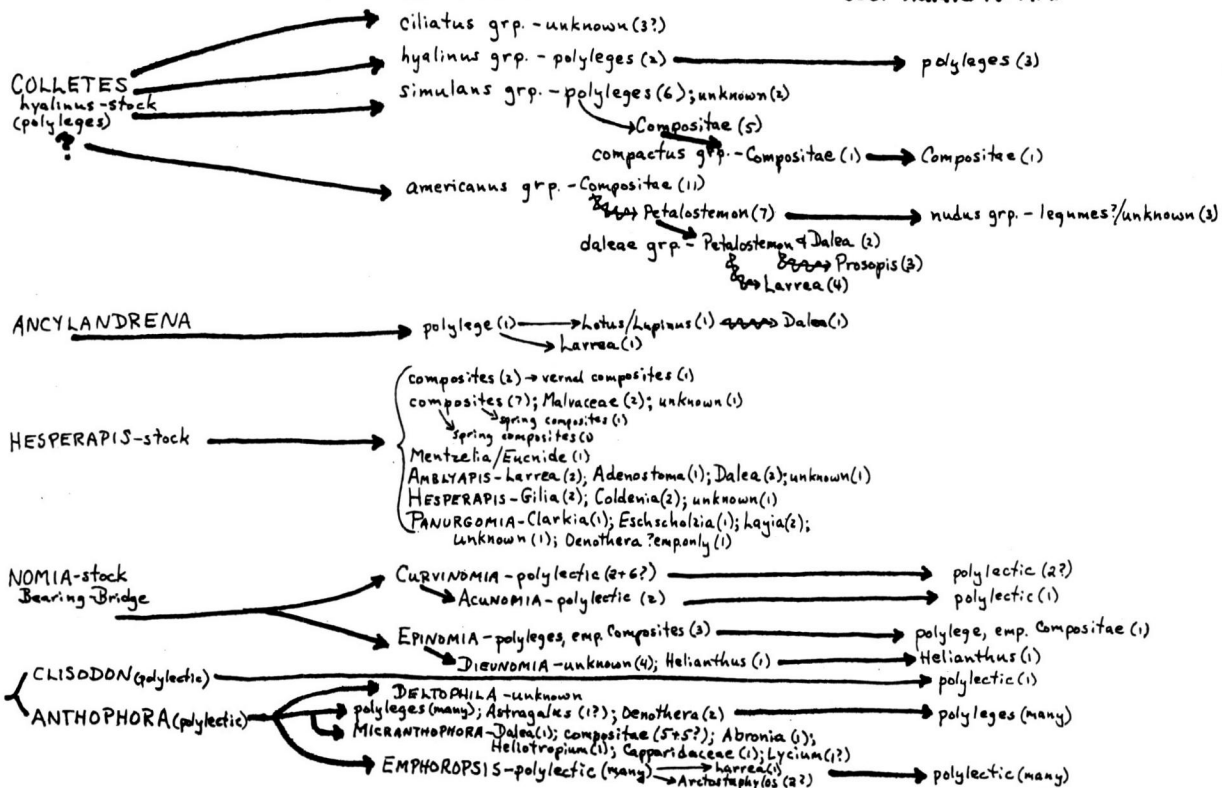 ciliatus grp. - unknown (3?)
hyalinus grp. - polyleges (2) polyleges (3)
COLLETES
hyalinus-stock
(polyleges)
?
simulans grp. - polyleges (6); unknown (2)
Compositae (5)
compactus grp. - Compositae (1) Compositae (1)
americanus grp. - Compositae (11)
Petalostemon (7) nudus grp. - legumes?/unknown (3)
daleae grp. - Petalostemon & Dalea (2)
Prosopis (3)
Larrea (4)
ANCYLANDRENA polylege (1) Lotus/Lupinus (1) Dalea (1)
Larrea (1)
composites (2) → vernal composites (1)
composites (7); Malvaceae (2); unknown (1)
spring composites (1)
spring composites ()
HESPERAPIS-stock
Mentzelia/Eucnide (1)
AMBLYAPIS-Larrea (2); Adenostoma (1); Dalea (2); unknown (1)
HESPERAPIS-Gilia (2); Coldenia (2); unknown (1)
PANURGOMIA-Clarkia (1); Eschscholzia (1); Layia (2);
unknown (1); Oenothera ?emp.only (1)
NOMIA-stock
Bearing-Bridge
CURVINOMIA - polylectic (2+6?) polylectic (2?)
ACUNOMIA - polylectic (2) polylectic (1)
EPINOMIA - polyleges, emp. Composites (3) polylege, emp. Compositae (1)
DIEUNOMIA - unknown (4); Helianthus (1) Helianthus (1)
CLISODON (polylectic) polylectic (1)
DELTOPHILA - unknown
ANTHOPHORA (polylectic) polyleges (many); Astragalus (1?); Oenothera (2) polyleges (many)
MICRANTHOPHORA - Dalea (1); compositae (5+5?); Abronia (1);
Heliotropium (1); Capparidaceae (1); Lycium (1?)
EMPHOROPSIS - polylectic (many) Larrea (1) polylectic (many)
Arctostaphylos (2?)